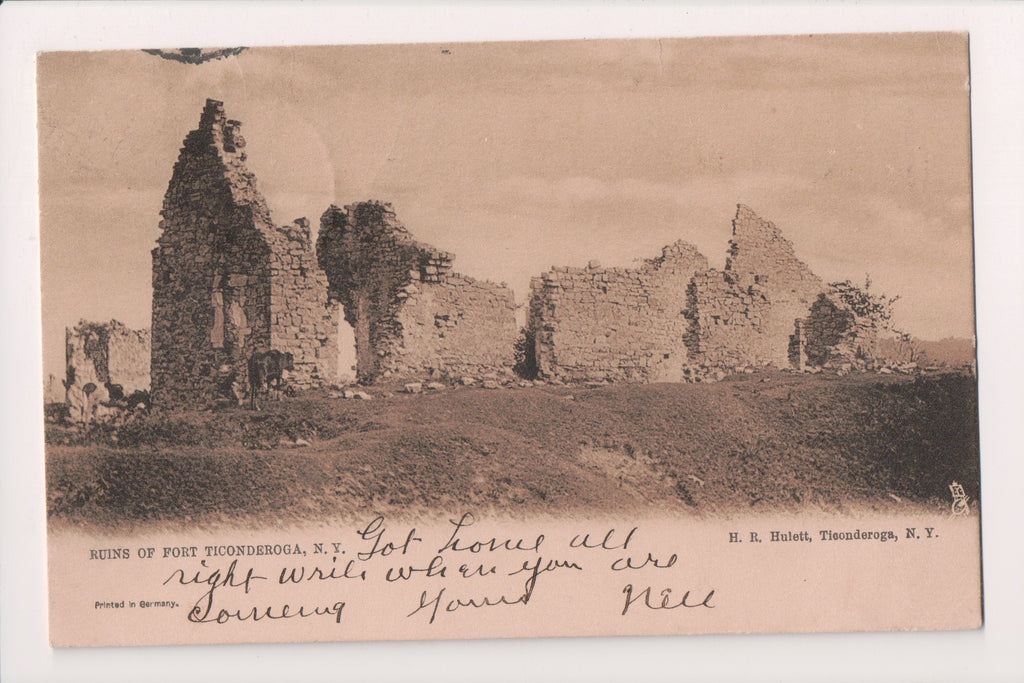 RUINS OF FORT TICONDEROGA, N. Y.
H. R. Hulett, Ticonderoga, N. Y.
Got home all
right write when you are
comeing Yours Nell
Printed in Germany.